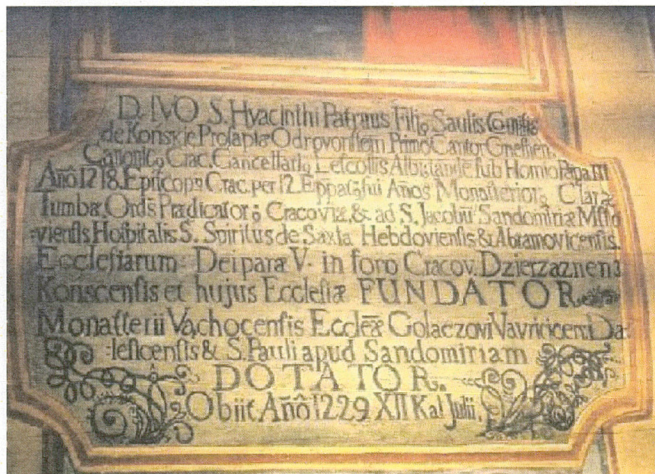 D. IVO S. Hyacinthi Patruus Filiq Saulis Comitis
de Konskie Prosapiæ Odrovonsiem Primo Cantor Gnesnen.
Canonicq Crac. Cancellariq Lescollis Albi, sub Honorio Papa III
Año 1218. Episcopq Crac. per 12. Años Monasterior, Claræ
Tumbæ, Ords Prædicator Cracoviæ, & ad S. Jacobū Sandomiriæ
viensis Hospitalis S. Spiritus de Saxia Hebdoviensis & Abramovicensis.
Ecclesiarum: Deiparæ V. in foro Cracov. Dzierzaznen:
Konscensis et hujus Ecclesiæ FUNDATOR.
Monasterii Vachocensis Ecclæ Golaczovi Da:
:lescensis & S. Pauli apud Sandomiriam
DOTATOR.
Obiit Añô 1229. XII Kal Julii.